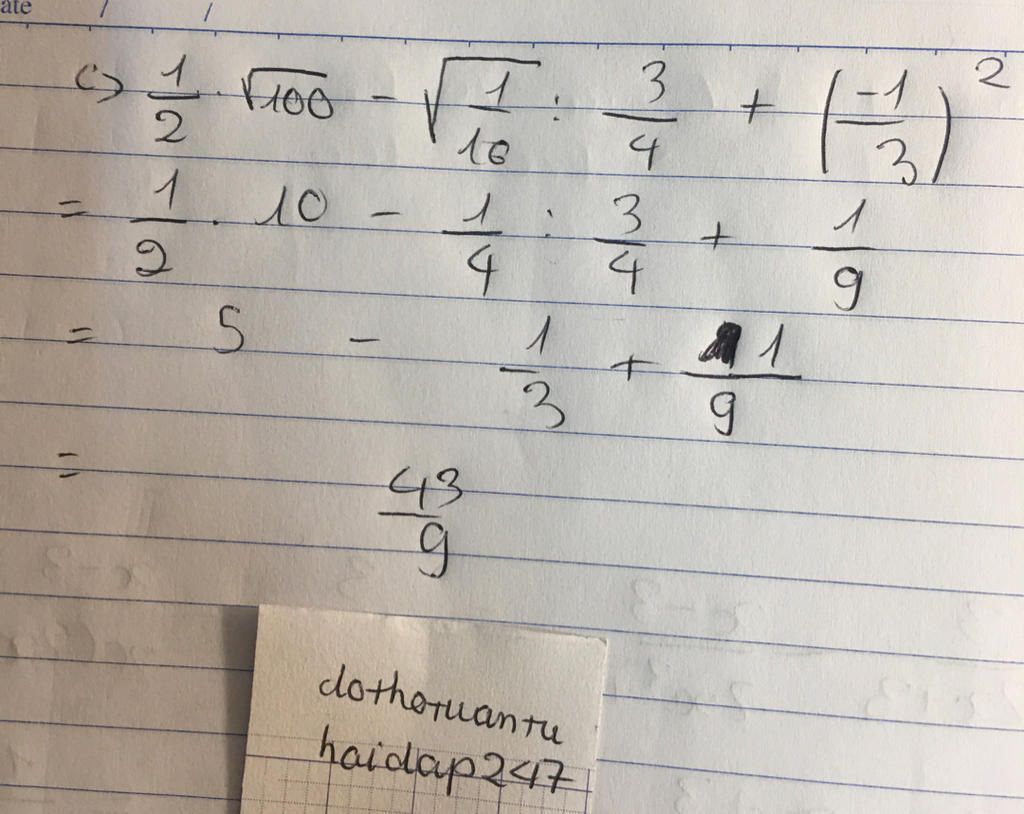 ate / /
c) 1/2 . √100 - √(1/16) : 3/4 + (-1/3)²
= 1/2 . 10 - 1/4 : 3/4 + 1/9
= 5 - 1/3 + 1/9
= 43/9
dothotuantu
haidap247